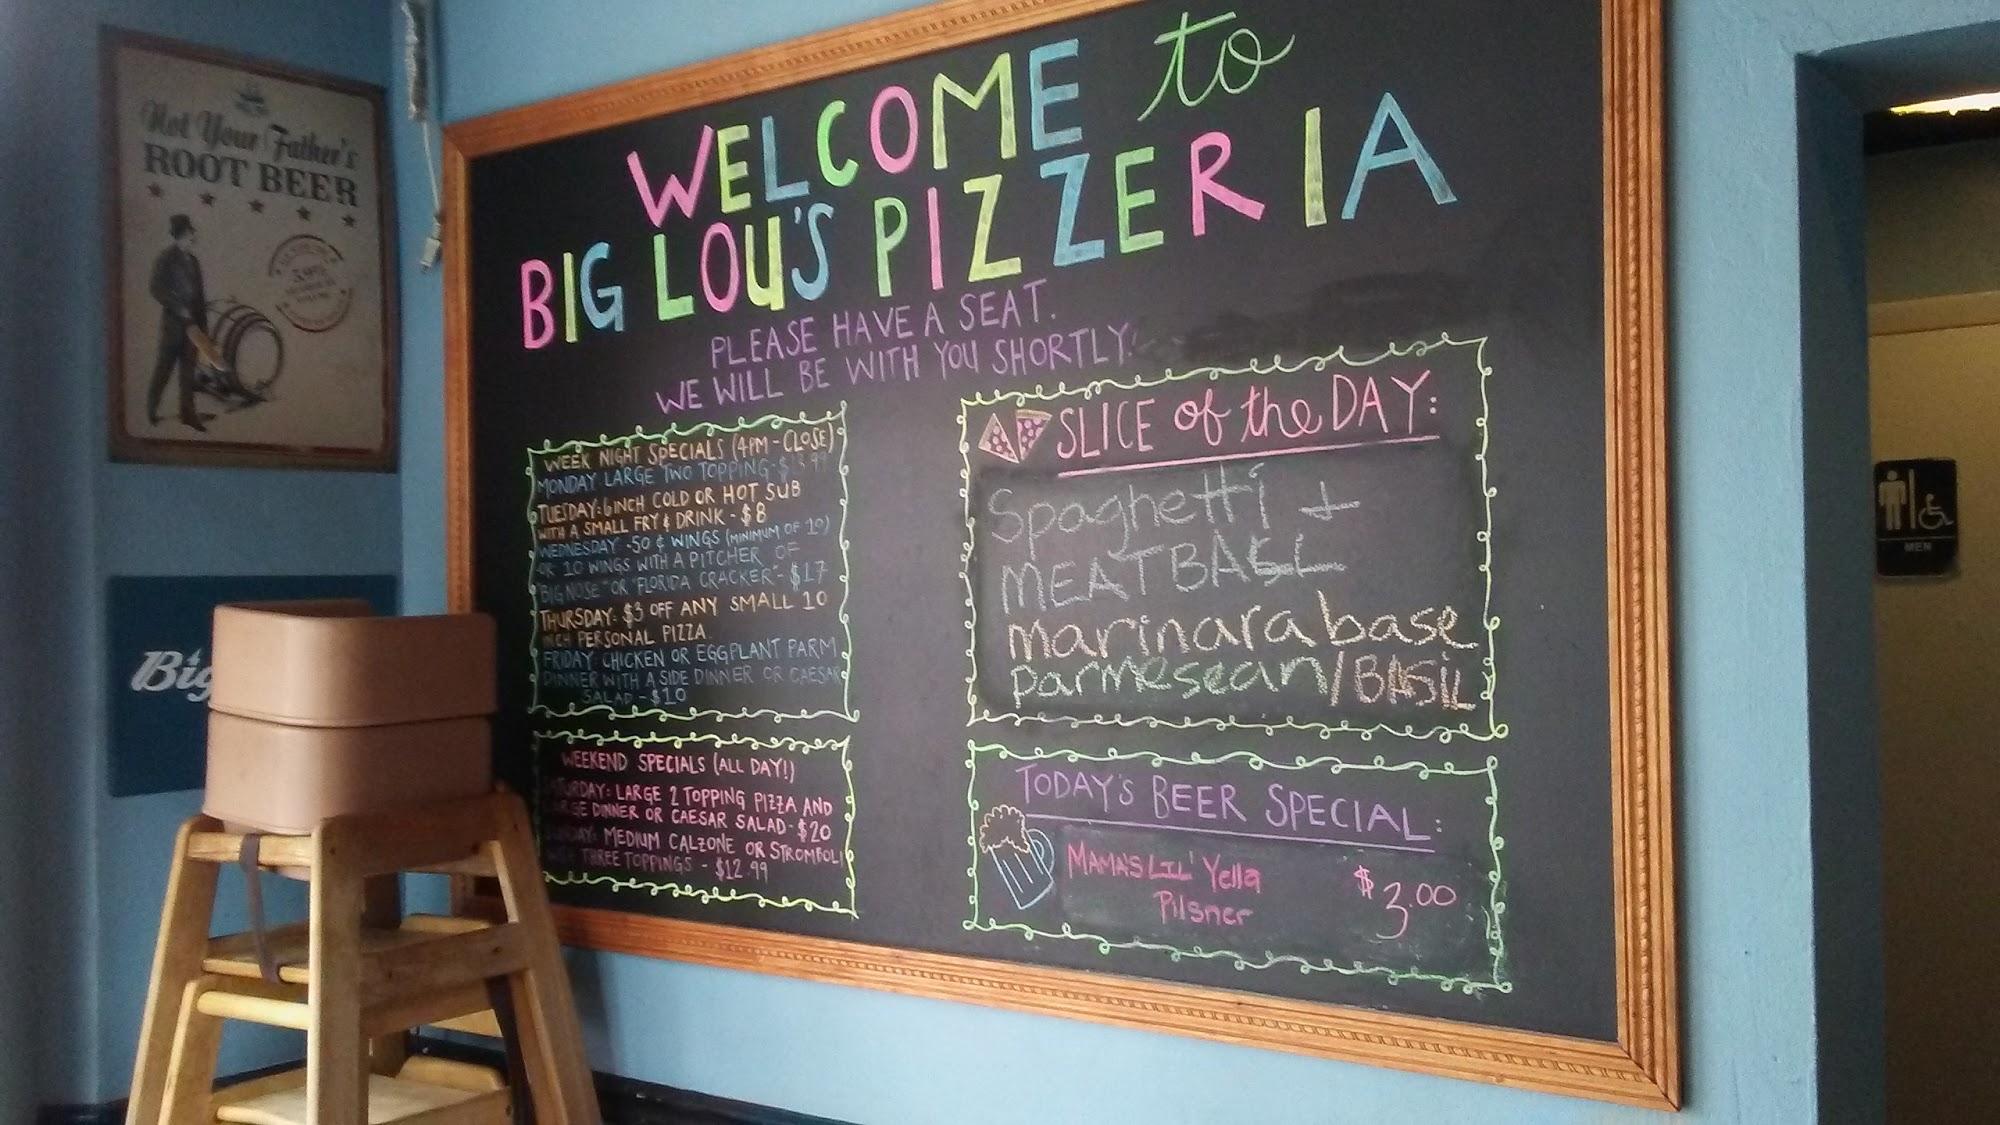 Not Your Father's
ROOT BEER
Big
WELCOME to
BIG LOU'S PIZZERIA
PLEASE HAVE A SEAT.
WE WILL BE WITH YOU SHORTLY!
WEEK NIGHT SPECIALS (4PM - CLOSE)
MONDAY LARGE TWO TOPPING - $13.99
TUESDAY: 6 INCH COLD OR HOT SUB
WITH A SMALL FRY & DRINK - $8
WEDNESDAY - 50 ¢ WINGS (MINIMUM OF 10)
OR 10 WINGS WITH A PITCHER OF
"BIG NOSE" OR "FLORIDA CRACKER" - $17
THURSDAY: $3 OFF ANY SMALL 10
INCH PERSONAL PIZZA
FRIDAY: CHICKEN OR EGGPLANT PARM
DINNER WITH A SIDE DINNER OR CAESAR
SALAD - $10
WEEKEND SPECIALS (ALL DAY!)
SATURDAY: LARGE 2 TOPPING PIZZA AND
LARGE DINNER OR CAESAR SALAD - $20
SUNDAY: MEDIUM CALZONE OR STROMBOLI
WITH THREE TOPPINGS - $12.99
SLICE of the DAY:
Spaghetti +
MEATBALL
marinara base
parmesean/BASIL
TODAY'S BEER SPECIAL:
MAMA'S LIL' Yella
Pilsner $3.00
MEN